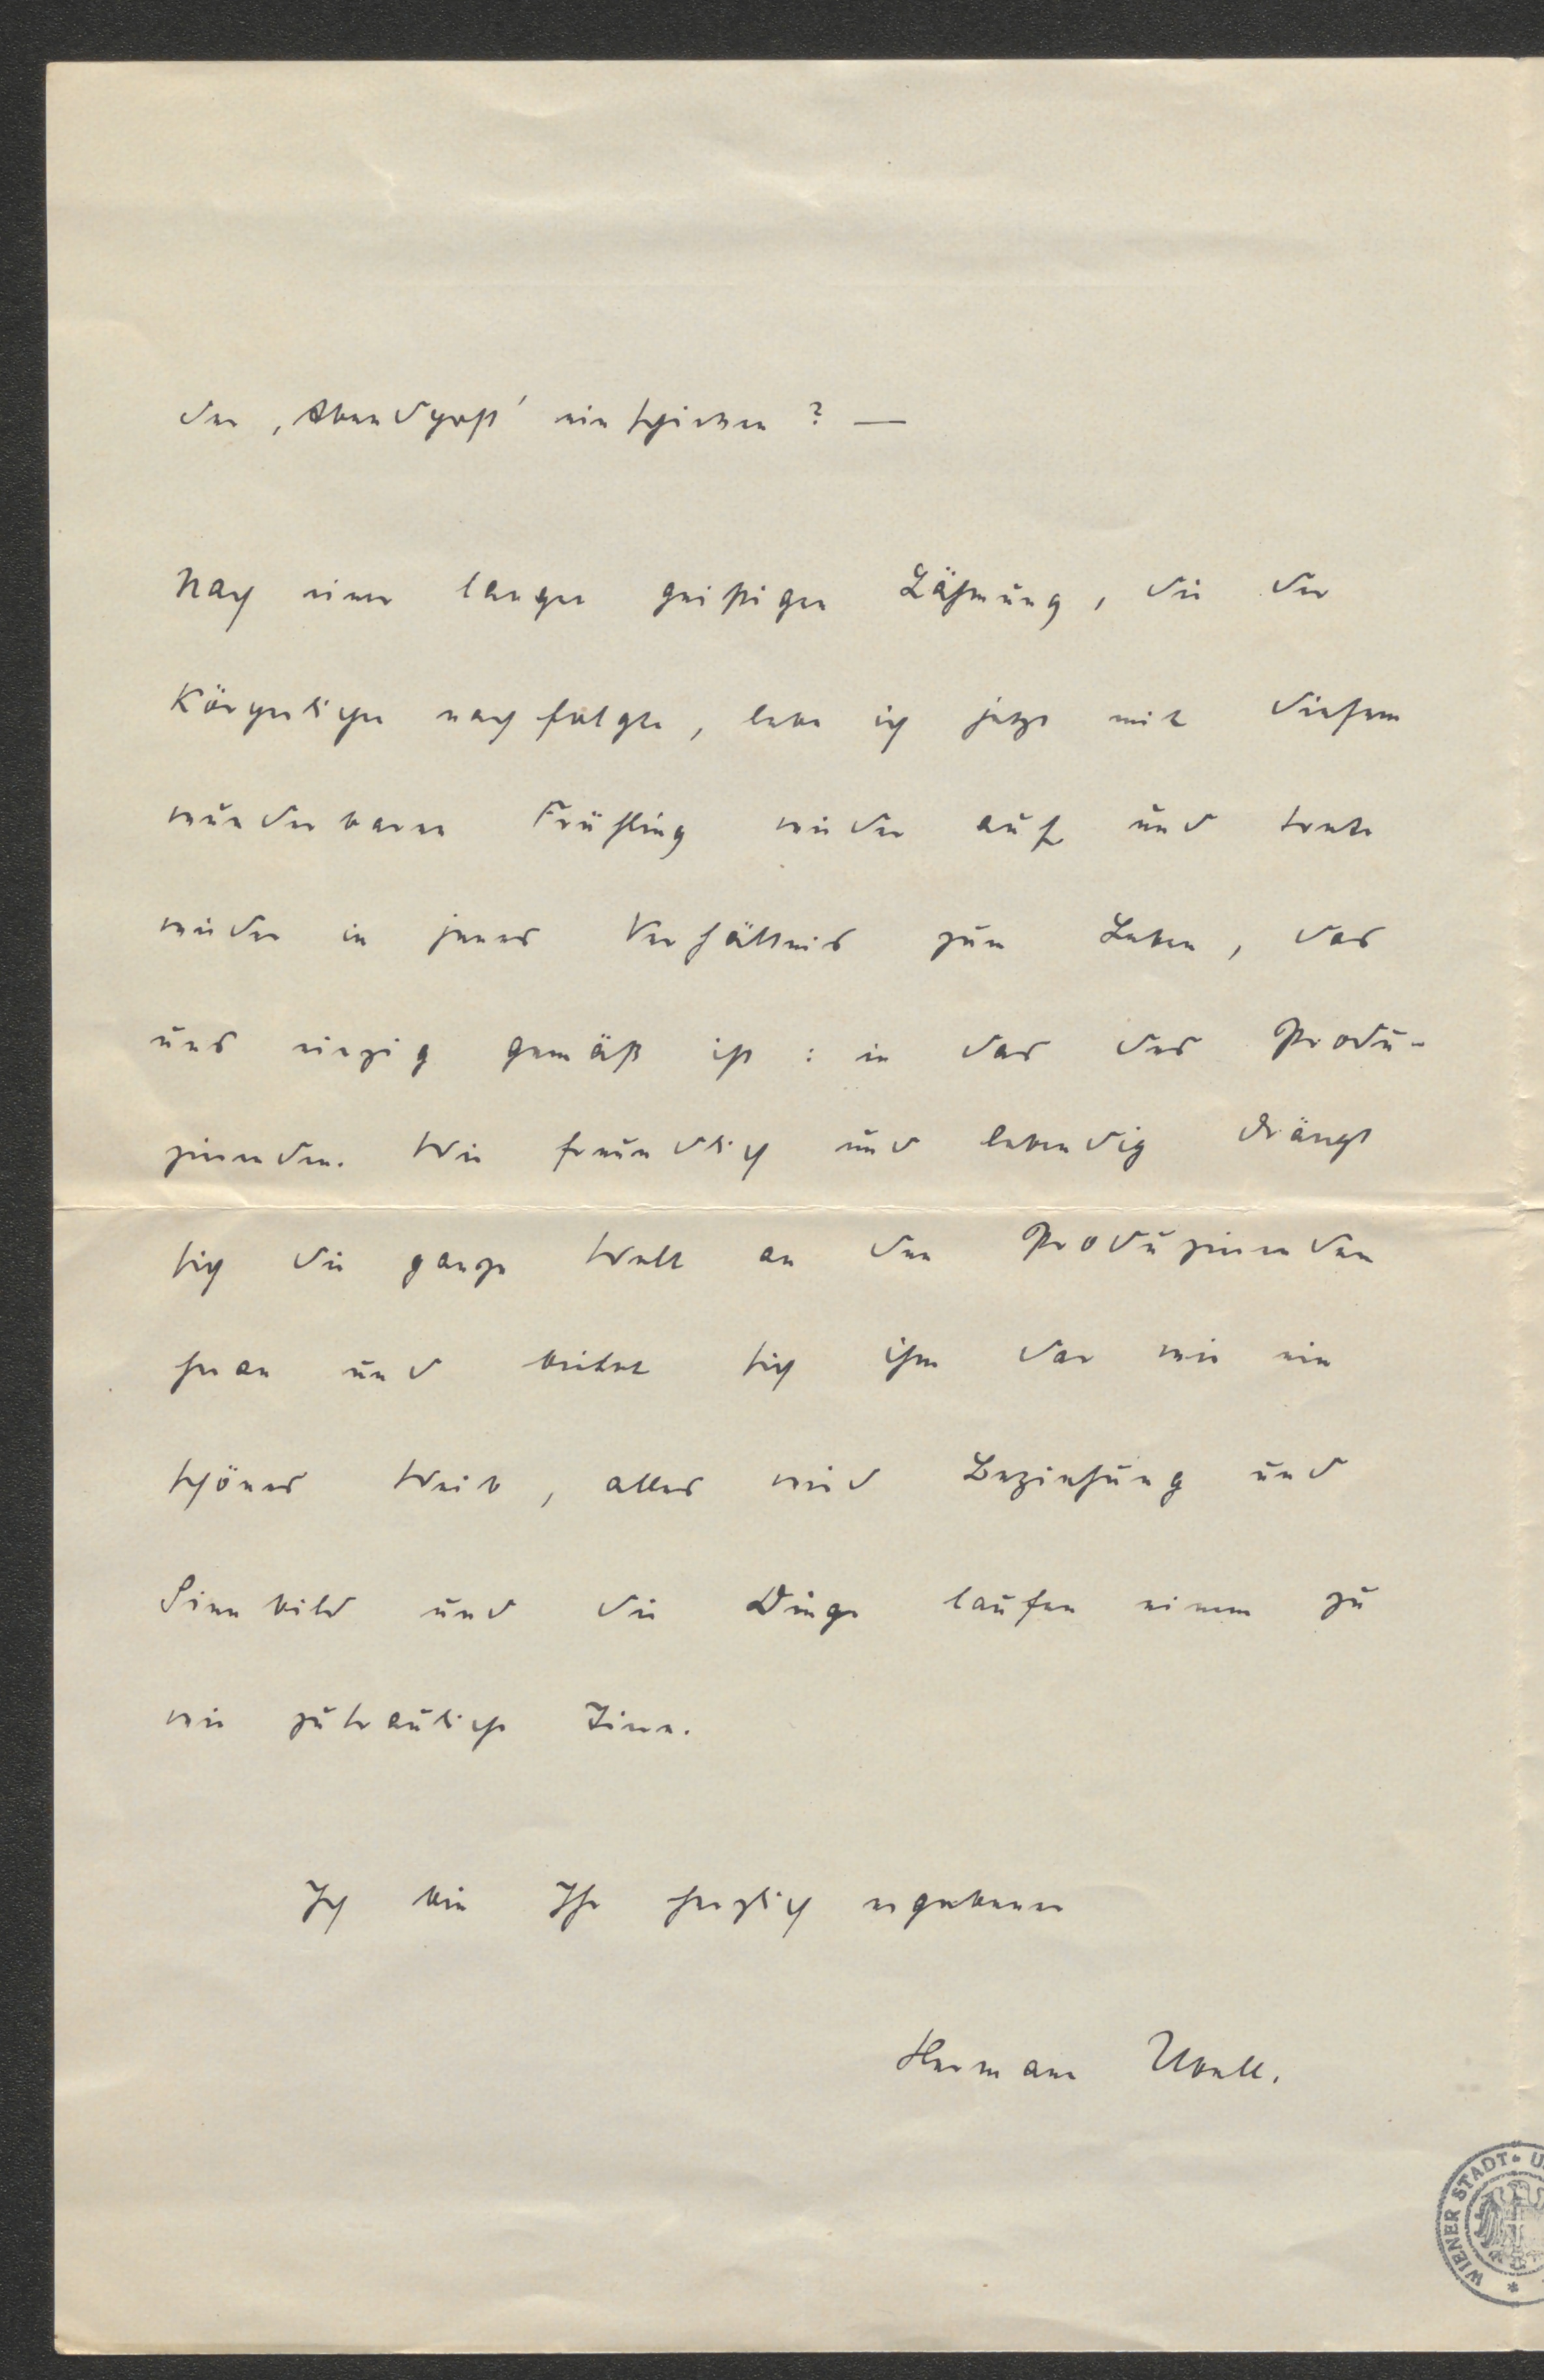 der ‚Abendpost' einschicken? —
Nach einer langen geistigen Lähmung, die der
körperlichen nachfolgte, lebe ich jetzt mit diesem
wunderbaren Frühling wieder auf und trete
wieder in jenes Verhältnis zum Leben, das
uns einzig gemäß ist: in das des Produ-
zierenden. Wie freundlich und lebendig drängt
sich die ganze Welt an den Produzierenden
heran und bietet sich ihm dar wie ein
schönes Weib, alles wird Beziehung und
Sinnbild und die Dinge laufen einem zu
wie zutrauliche Tiere.
Ich bin Ihr herzlich ergebener
Hermann Ubell.
WIENER STADT- U